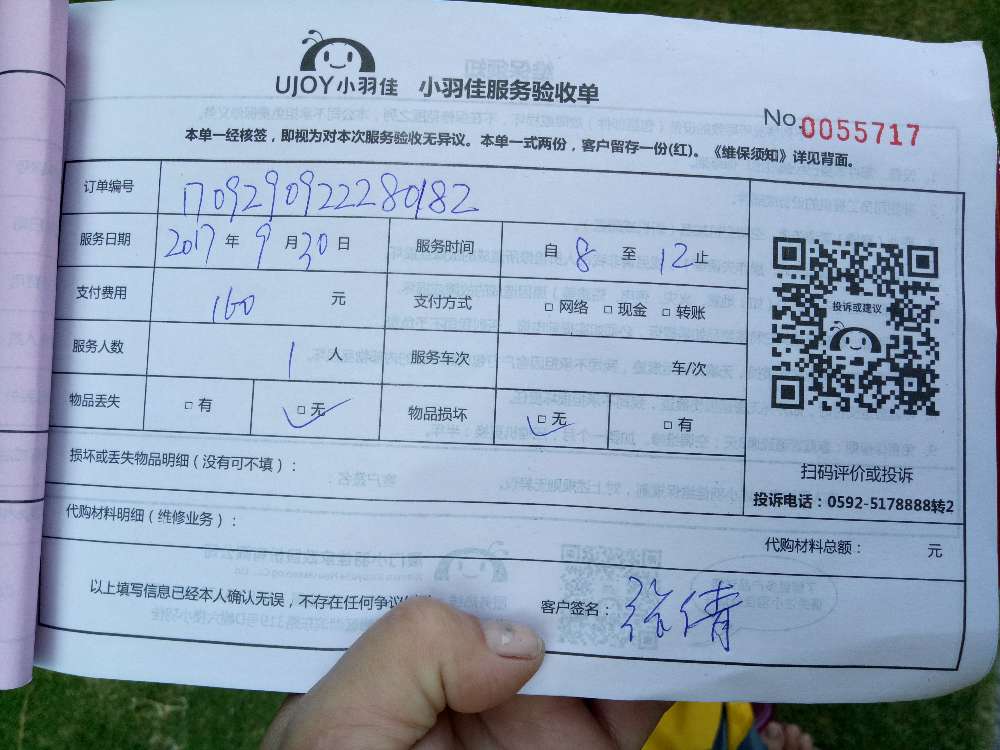 UJOY小羽佳 小羽佳服务验收单
No.0055717
本单一经核签，即视为对本次服务验收无异议。本单一式两份，客户留存一份(红)。《维保须知》详见背面。
订单编号 1709290922280182
服务日期 2017年9月30日 服务时间 自8至12止
支付费用 160元 支付方式 □网络 □现金 □转账
服务人数 1人 服务车次 车/次
物品丢失 □有 □无 物品损坏 □无 □有
投诉或建议
扫码评价或投诉
投诉电话：0592-5178888转2
损坏或丢失物品明细（没有可不填）：
代购材料明细（维修业务）：
代购材料总额： 元
以上填写信息已经本人确认无误，不存在任何争议
客户签名：徐倩